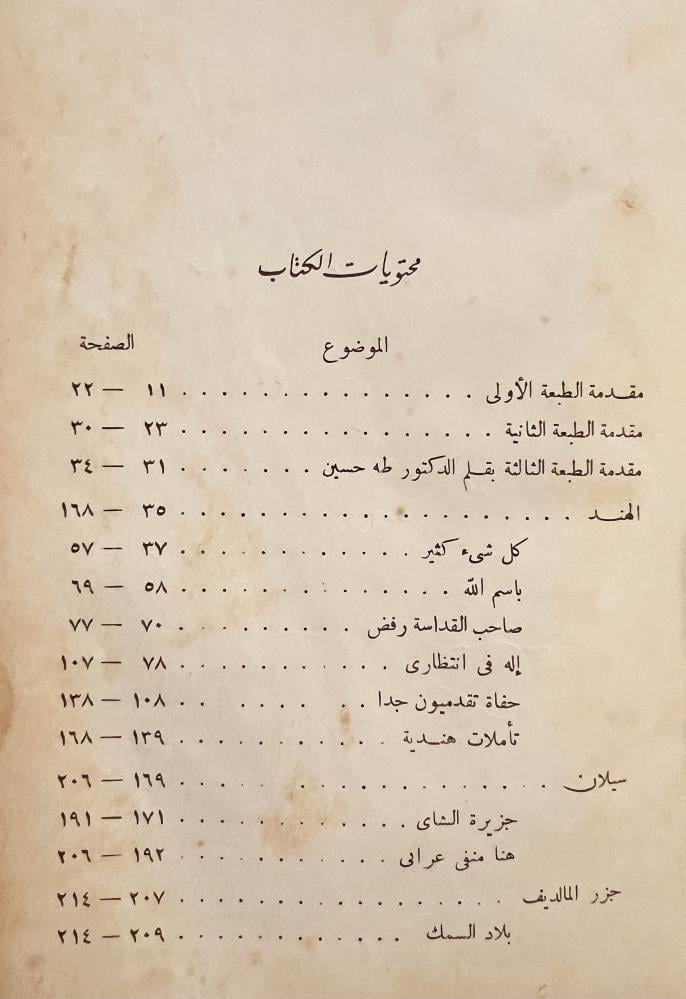 محتويات الكتاب
الموضوع الصفحة
مقدمة الطبعة الأولى . . . . . . . . . . . . . . . ١١ — ٢٢
مقدمة الطبعة الثانية . . . . . . . . . . . . . . . . ٢٣ — ٣٠
مقدمة الطبعة الثالثة بقلم الدكتور طه حسين . . . . . . . ٣١ — ٣٤
الهند . . . . . . . . . . . . . . . . . . . . ٣٥ — ١٦٨
كل شىء كثير . . . . . . . . . . . . ٣٧ — ٥٧
باسم الله . . . . . . . . . . . . . . ٥٨ — ٦٩
صاحب القداسة رفض . . . . . . . . . ٧٠ — ٧٧
إله فى انتظارى . . . . . . . . . . . ٧٨ — ١٠٧
حفاة تقدميون جدا . . . . . . . . ١٠٨ — ١٣٨
تأملات هندية . . . . . . . . . . . ١٣٩ — ١٦٨
سيلان . . . . . . . . . . . . . . . . . . . ١٦٩ — ٢٠٦
جزيرة الشاى . . . . . . . . . . . . ١٧١ — ١٩١
هنا منفى عرابى . . . . . . . . . . . ١٩٢ — ٢٠٦
جزر المالديف . . . . . . . . . . . . . . . . . ٢٠٧ — ٢١٤
بلاد السمك . . . . . . . . . . . . ٢٠٩ — ٢١٤